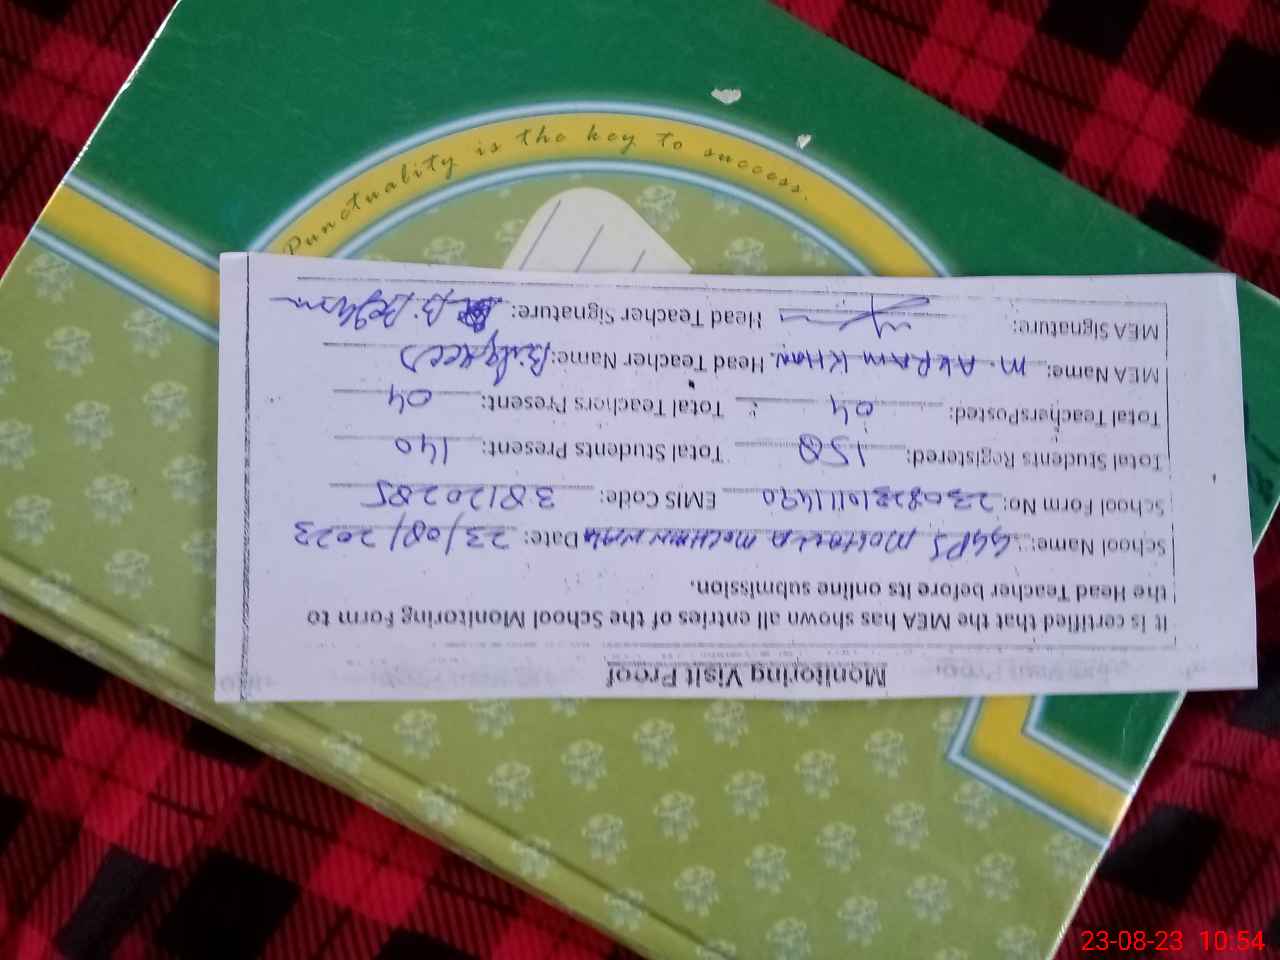 Punctuality is the key to success.
Monitoring Visit Proof
It is certified that the MEA has shown all entries of the School Monitoring Form to
the Head Teacher before its online submission.
School Name: GGPS Date: 23/08/2023
School Form No: EMIS Code: 38120285
Total Students Registered: Total Students Present: 140
Total TeachersPosted: 04 Total Teachers Present: 04
MEA Name: M. AKRAM KHAN. Head Teacher Name: Bilqees
MEA Signature: Head Teacher Signature:
23-08-23 10:54